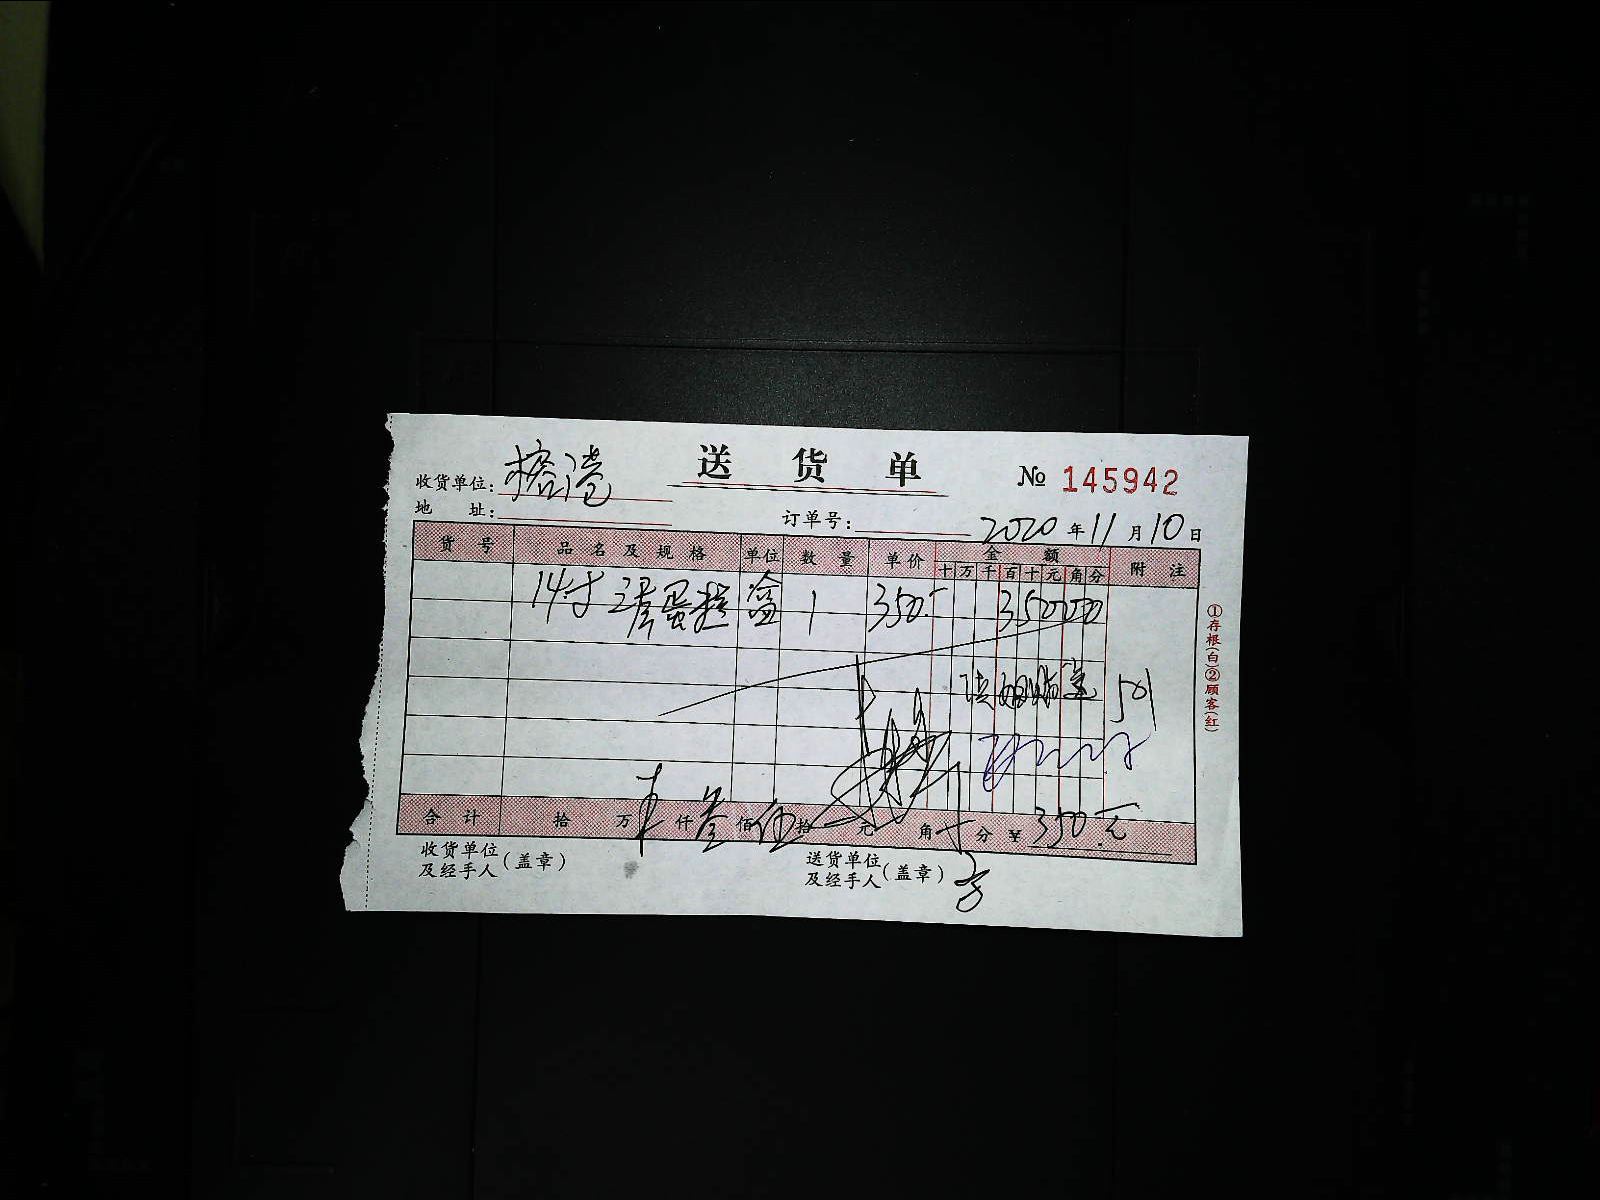 送 货 单
收货单位: 榕港 № 145942
地 址: 订单号: 2020 年 11 月 10 日
货 号 品 名 及 规 格 单位 数 量 单价 金 额 附 注
十 万 千 百 十 元 角 分
14寸 蛋糕 盒 1 350.- 35000
501
合 计 拾 万 仟 叁 佰 伍 拾 元 角 分 ¥ 350.元
收货单位
及经手人 (盖章)
送货单位
及经手人 (盖章)
①存根(白)②顾客(红)